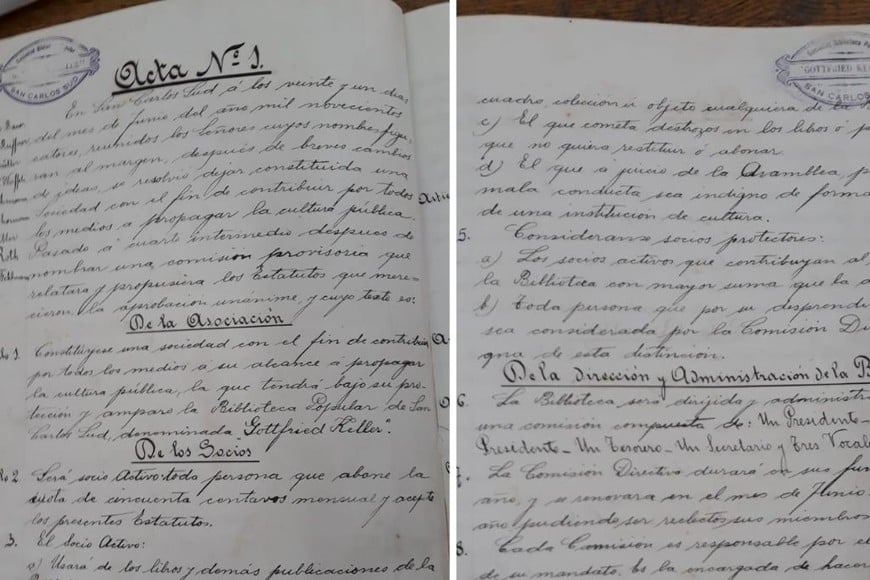 SAN CARLOS SUD
Acta Nº 1.
En San Carlos Sud á los veinte y un dias
del mes de Junio del año mil novecientos
catorce, reunidos los Señores cuyos nombres figu-
ran al margen, después de breves cambios
de ideas, se resolvió dejar constituida una
Sociedad con el fin de contribuir por todos
los medios a propagar la cultura pública.
Pasado á cuarto intermedio después de
nombrar una comisión provisoria que
relatara y propusiera los Estatutos que mere-
cieron la aprobacion unánime y cuyo texto es:
De la Asociación
lo 1. Constitúyese una sociedad con el fin de contribuir
por todos los medios a su alcance á propagar
la cultura pública, la que tendrá bajo su pro-
tección y amparo la Biblioteca Popular de San
Carlos Sud, denominada "Gottfried Keller".
De los Socios
lo 2 Será socio Activo toda persona que abone la
cuota de cincuenta centavos mensual y acepte
los presentes Estatutos.
3. El Socio Activo:
a) Usará de los libros y demás publicaciones de la
"GOTTFRIED KE
SAN CARLOS
cuadro, colección ú objeto cualquiera de la
c) El que cometa destrozos en los libros ó
que no quiera restituir ó abonar
d) El que á juicio de la Asamblea, p
mala conducta sea indigno de forma
de una institución de cultura.
5. Consideranse socios protectores:
a) Los socios activos que contribuyan al
la Biblioteca con mayor suma que la
b) Toda persona que por su desprendi
sea considerada por la Comisión Di
gna de esta distinción.
De la Dirección y Administración de la B
6. La Biblioteca será dirigida y administra
una comisión compuesta de: Un Presidente-
Presidente - Un Tesorero - Un Secretario y Tres Vocale
7. La Comisión Directiva durará en sus fun
año, y se renovara en el mes de Junio
año pudiendo ser reelectos sus miembros
8. Cada Comision es responsable por el
de su mandato. Es la encargada de hacer